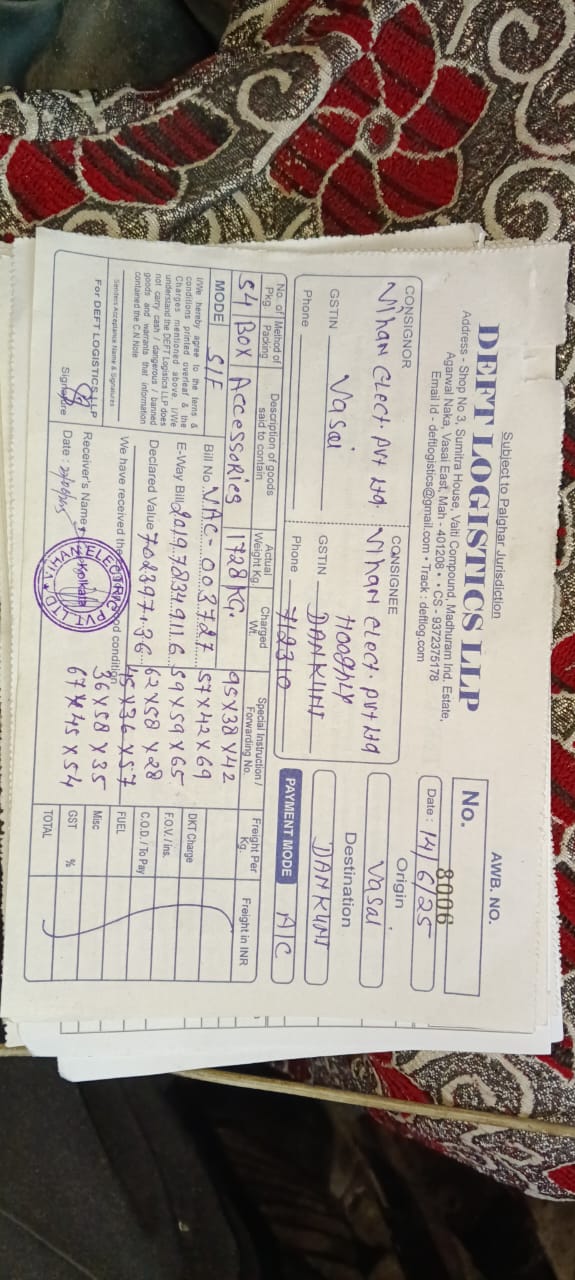 Subject to Palghar Jurisdiction
DEFT LOGISTICS LLP
Address - Shop No 3, Sumitra House, Vaiti Compound, Madhuram Ind. Estate,
Agarwal Naka, Vasai East, Mah - 401208 • • CS - 9372375178
Email Id - deftlogistics@gmail.com • Track : deftlog.com
AWB. NO.
No. 8006
Date : 14/6/25
CONSIGNOR
Vihan Elect. Pvt Ltd.
Vasai
GSTIN
Phone
CONSIGNEE
Vihan Elect. Pvt Ltd
Hooghly
GSTIN DANKUNI
Phone 712310
Origin
Vasai
Destination
DANKUNI
PAYMENT MODE A/C
No. of Pkg. Method of Packing Description of goods said to contain Actual Weight Kg. Charged Wt. Special Instruction / Forwarding No. Freight Per Kg. Freight in INR
54 BOX Accessories 1728 KG. 95 X 38 X 42
MODE S/F Bill No. VAC-003727 57 X 42 X 69 DKT Charge
E-Way Bill 59 X 59 X 65 F.O.V. / ins.
Declared Value 702397.36 62 X 58 X 28 C.O.D. / To Pay
I/We hereby agree to the tems &
conditions printed overleaf & the
Charges mentioned above. I//We
understand the DEFT Logistics LLP does
not carry cash / dangerous / banned
goods and warrants that information
contained the C.N Note
Senders Acceptance Name & Signatures
We have received the good condition 45 X 36 X 57 FUEL
36 X 58 X 35 Misc
67 X 45 X 54 GST %
TOTAL
For DEFT LOGISTICS LLP
Signature
Receiver's Name
Date :
VIHAN ELECTRIC PVT. LTD.
Kolkata